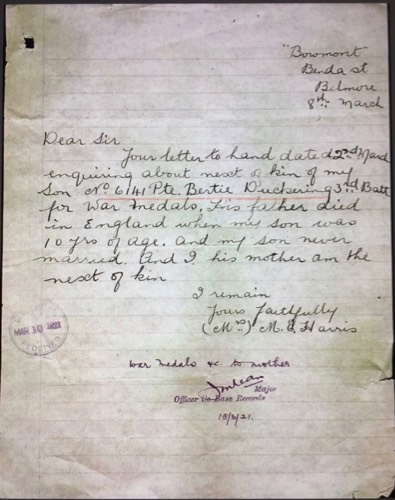 "Bowmont"
Benda st
Belmore
8th March
Dear Sir
Your letter to hand dated 2nd March
enquiring about next of kin of my
Son No 6141 Pte. Bertie Duckering 3rd Batt
for War Medals. His father died
in England when my son was
10 yrs of age. and my son never
married. And I his mother am the
next of kin
I remain
Yours Faithfully
(Mrs) M. E. Harris
MAR 10 1921
RECEIVED
War Medals &c. to mother
Major
Officer i/c Base Records
15/3/21.